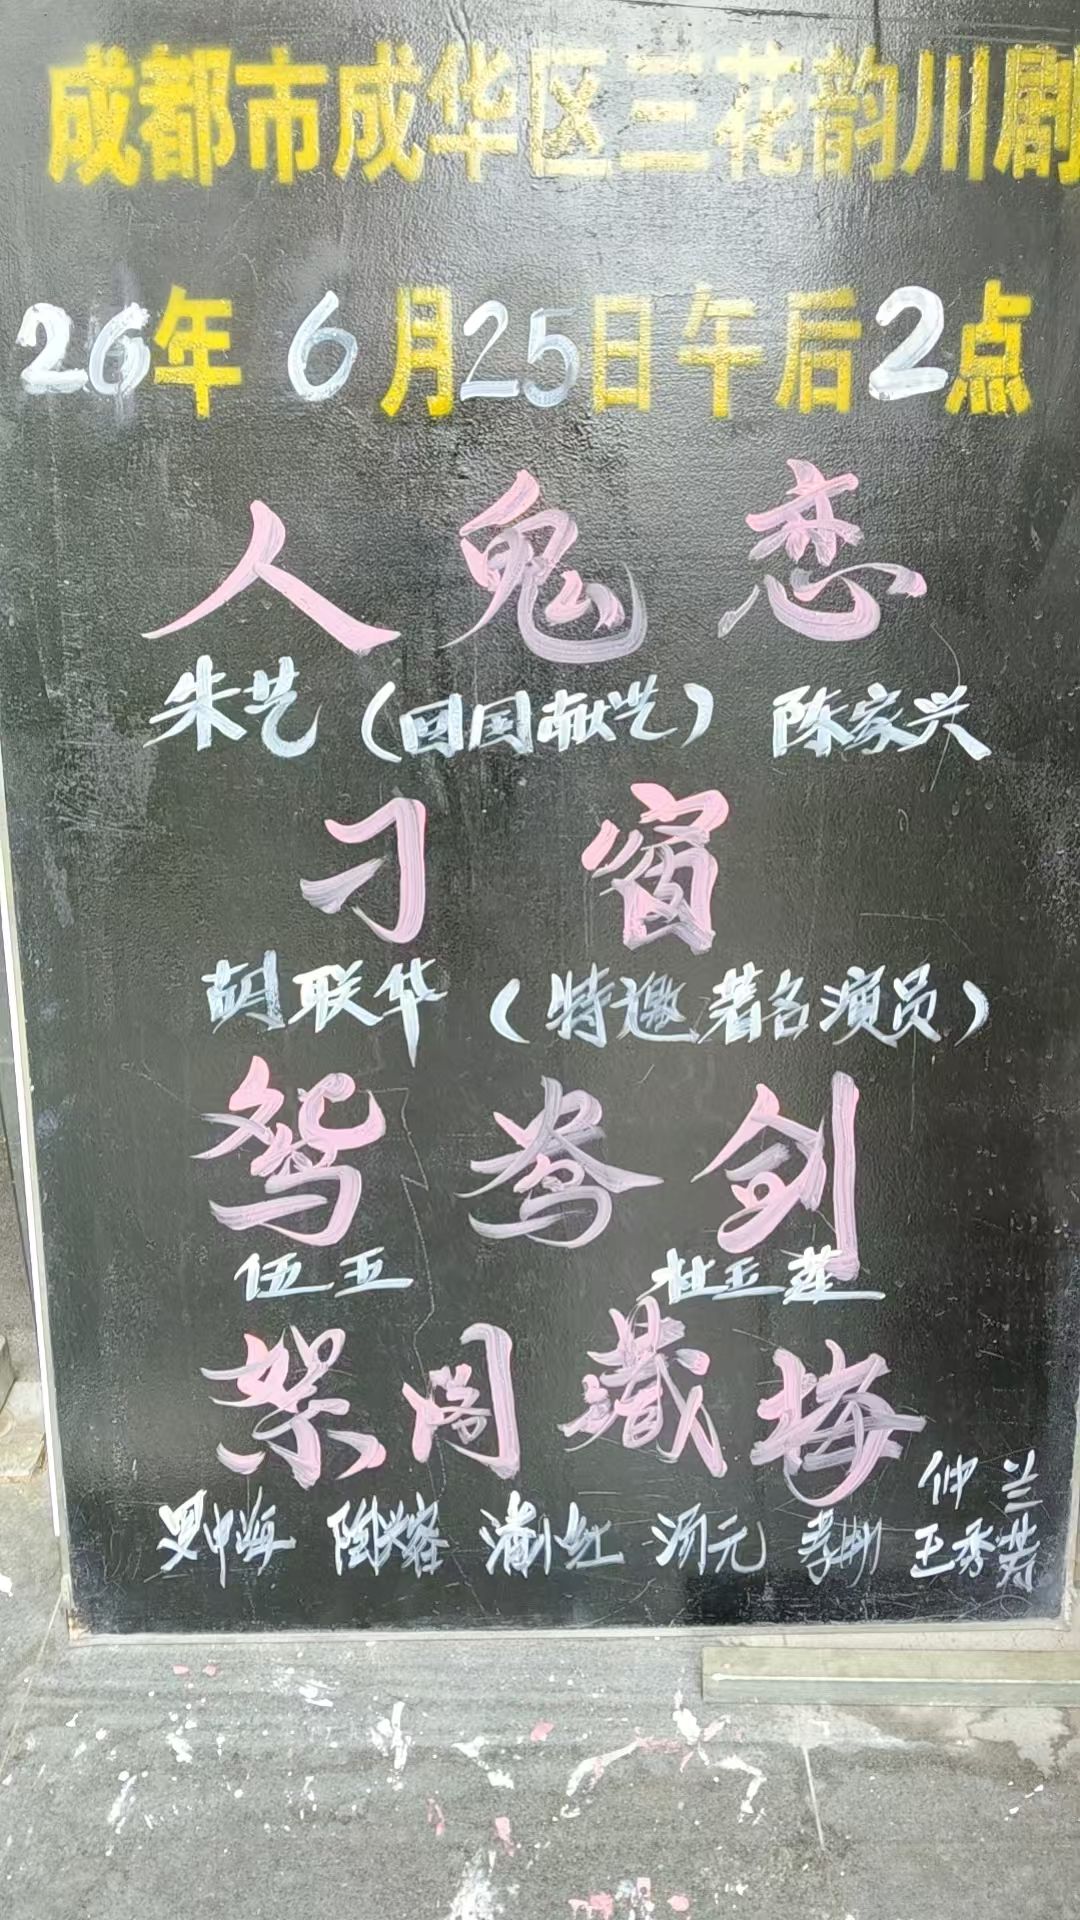 成都市成华区三花韵川剧
26年 6月25日午后2点
人鬼恋
朱艺（回国献艺） 陈家兴
刁窗
胡联华（特邀著名演员）
鸳鸯剑
伍五 杜玉莲
絮阁藏梅
仲兰
罗中海 陶兴容 潘小红 汤元 李刚 王秀芳